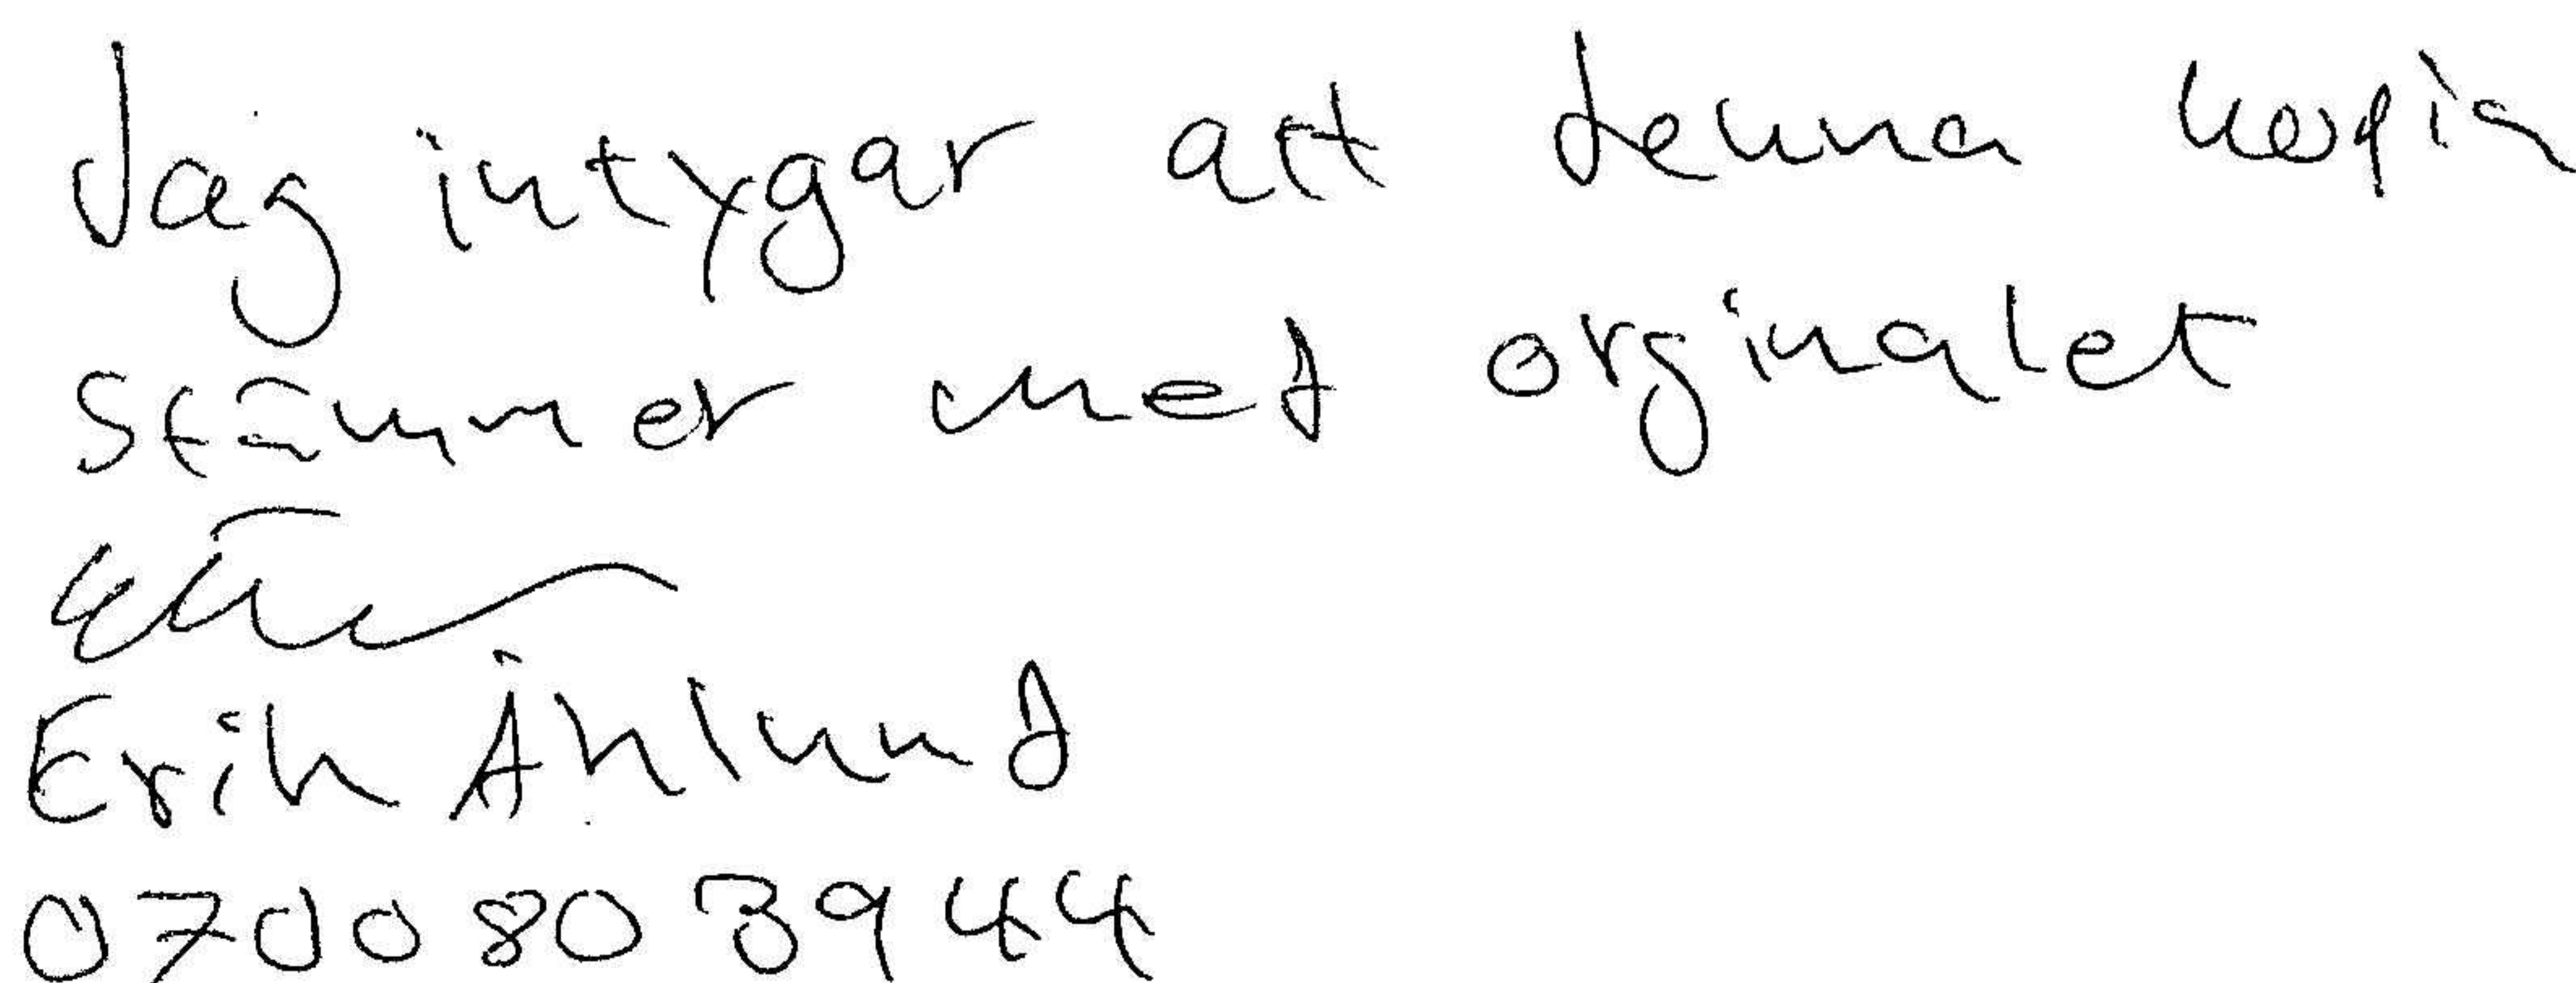 Jag intygar att denna kopia
stämmer med orginalet
Erik Åhlund
0700803944